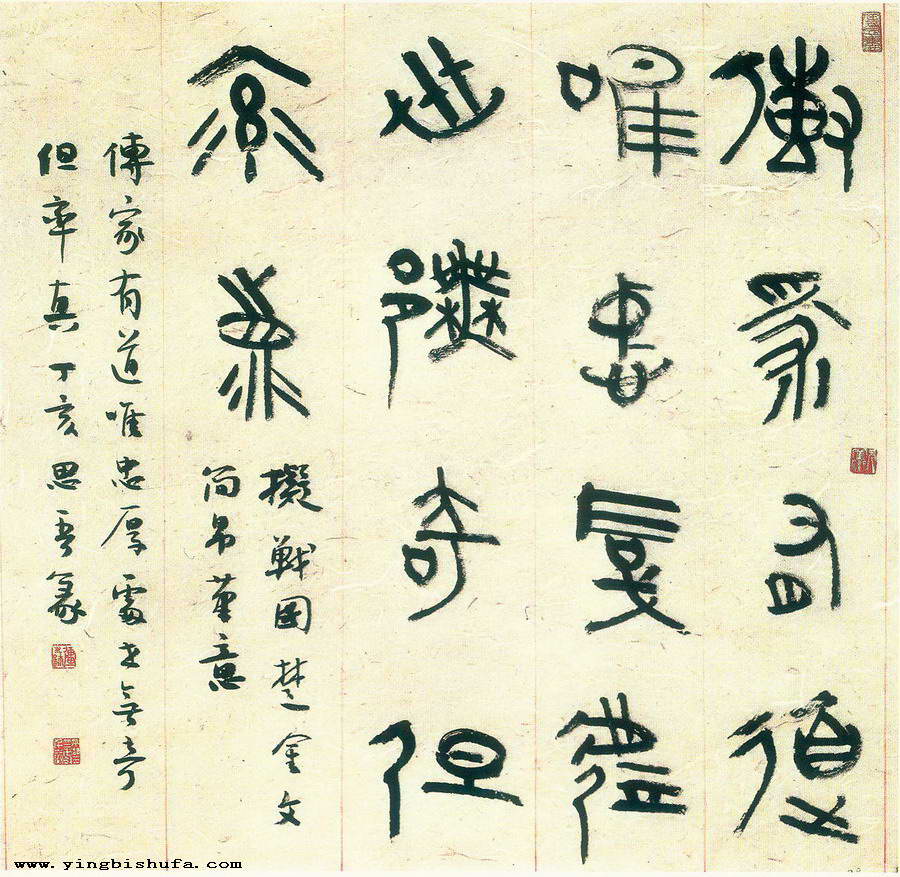 傳家有道
唯忠厚處
世無奇但
率真
擬戰國楚金文
簡帛筆意
傳家有道唯忠厚處世無奇
但率真丁亥思吾篆
www.yingbishufa.com